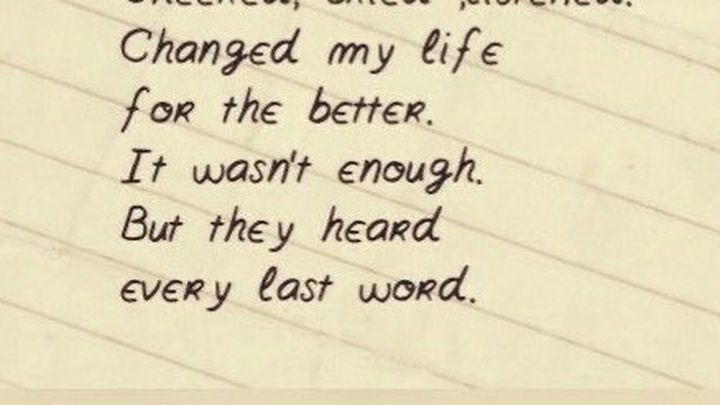 Changed my life
for the better.
It wasn't enough.
But they heard
every last word.